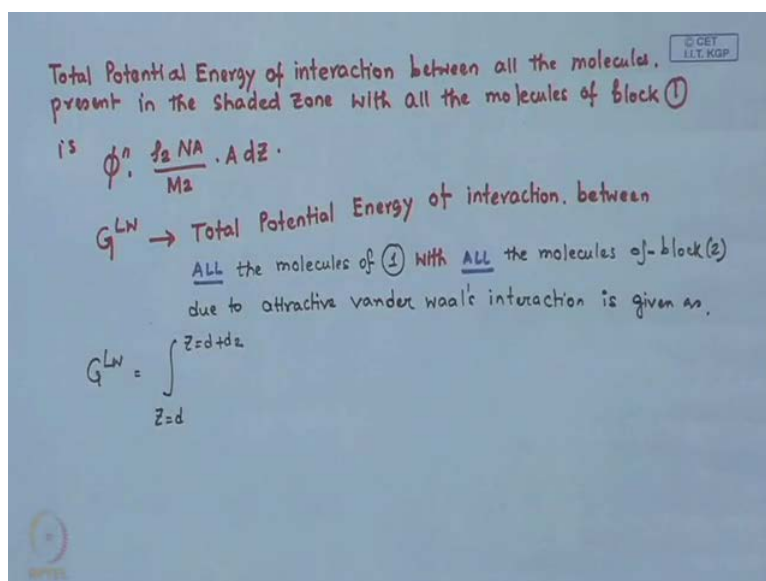 © CET
I.I.T. KGP
Total Potential Energy of interaction between all the molecules.
present in the shaded zone with all the molecules of block ①
is φ". ρ₂ NA / M₂ . A dz .
G^LW → Total Potential Energy of interaction. between
ALL the molecules of ① with ALL the molecules of block (2)
due to attractive vander waal's interaction is given as,
G^LW = ∫
z=d+d₂
z=d
NPTEL